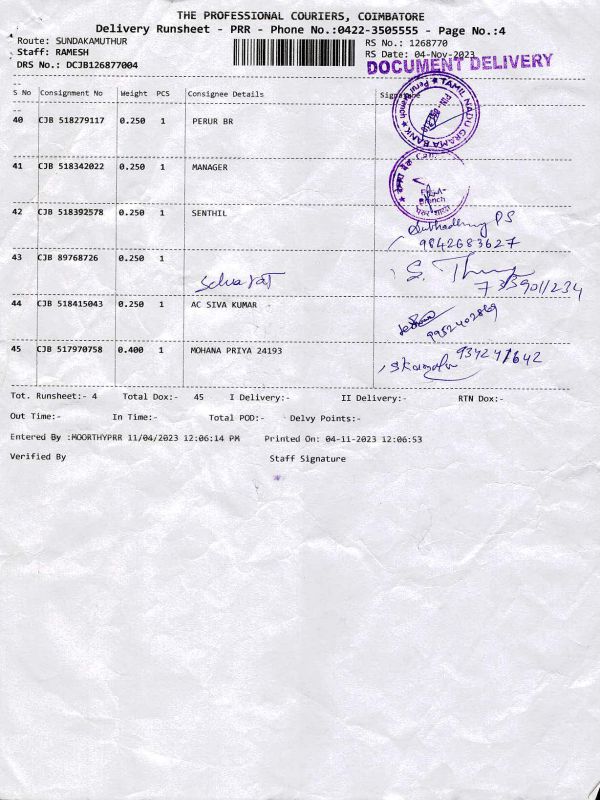 THE PROFESSIONAL COURIERS, COIMBATORE
Delivery Runsheet - PRR - Phone No.:0422-3505555 - Page No.:4
Route: SUNDAKAMUTHUR RS No.: 1268770
Staff: RAMESH RS Date: 04-Nov-2023
DRS No.: DCJB126877004 DOCUMENT DELIVERY
S No Consignment No Weight PCS Consignee Details Signature
40 CJB 518279117 0.250 1 PERUR BR
TAMIL NADU GRAMA BANK
Perur Branch
41 CJB 518342022 0.250 1 MANAGER
42 CJB 518392578 0.250 1 SENTHIL
PS
9842683627
43 CJB 89768726 0.250 1
44 CJB 518415043 0.250 1 AC SIVA KUMAR
9952402869
45 CJB 517970758 0.400 1 MOHANA PRIYA 24193
Tot. Runsheet:- 4 Total Dox:- 45 I Delivery:- II Delivery:- RTN Dox:-
Out Time:- In Time:- Total POD:- Delvy Points:-
Entered By :MOORTHYPRR 11/04/2023 12:06:14 PM Printed On: 04-11-2023 12:06:53
Verified By Staff Signature